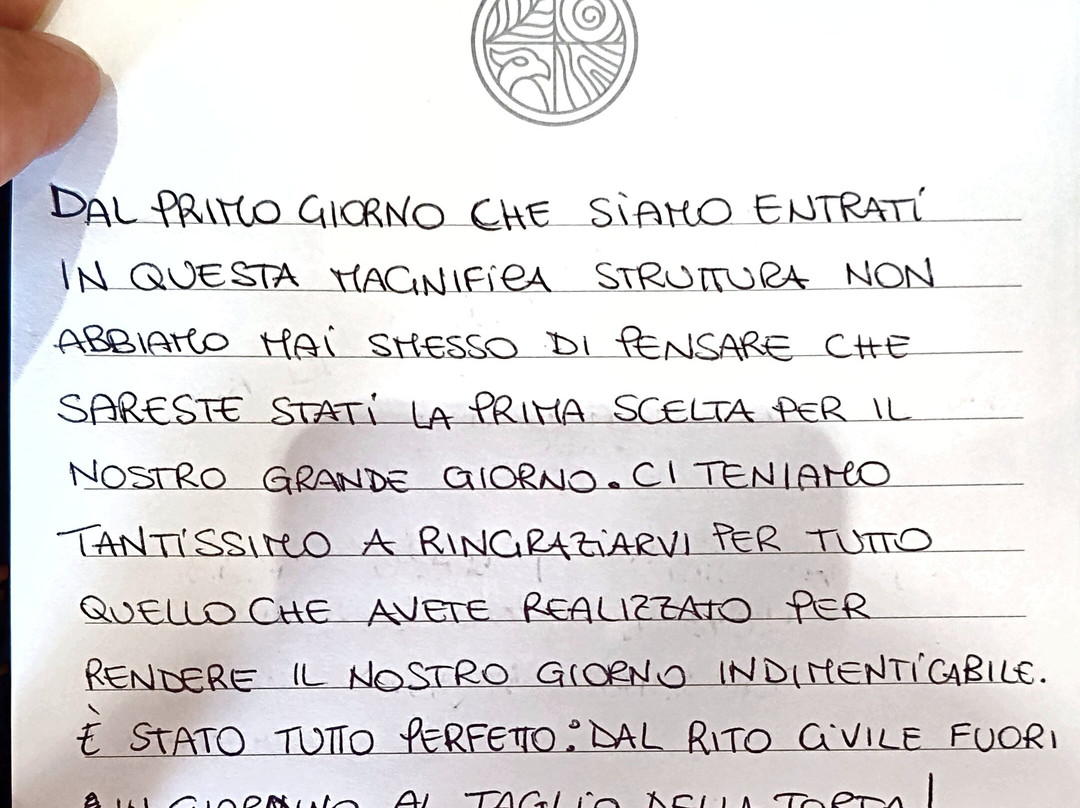 DAL PRIMO GIORNO CHE SiAMO ENTRATi
IN QUESTA MAGNIFiCA STRUTTURA NON
ABBIAMO MAi SMESSO DI PENSARE CHE
SARESTE STATi LA PRIMA SCELTA PER IL
NOSTRO GRANDE GIORNO. CI TENIAMO
TANTiSSIMO A RINGRAZiARVI PER TUTTO
QUELLO CHE AVETE REALIZZATO PER
RENDERE IL NOSTRO GIORNO INDIMENTiCABILE.
È STATO TUTTO PERFETTO: DAL RITO CiVILE FUORI
GIARDINO AL TAGLIO DELLA TORTA!